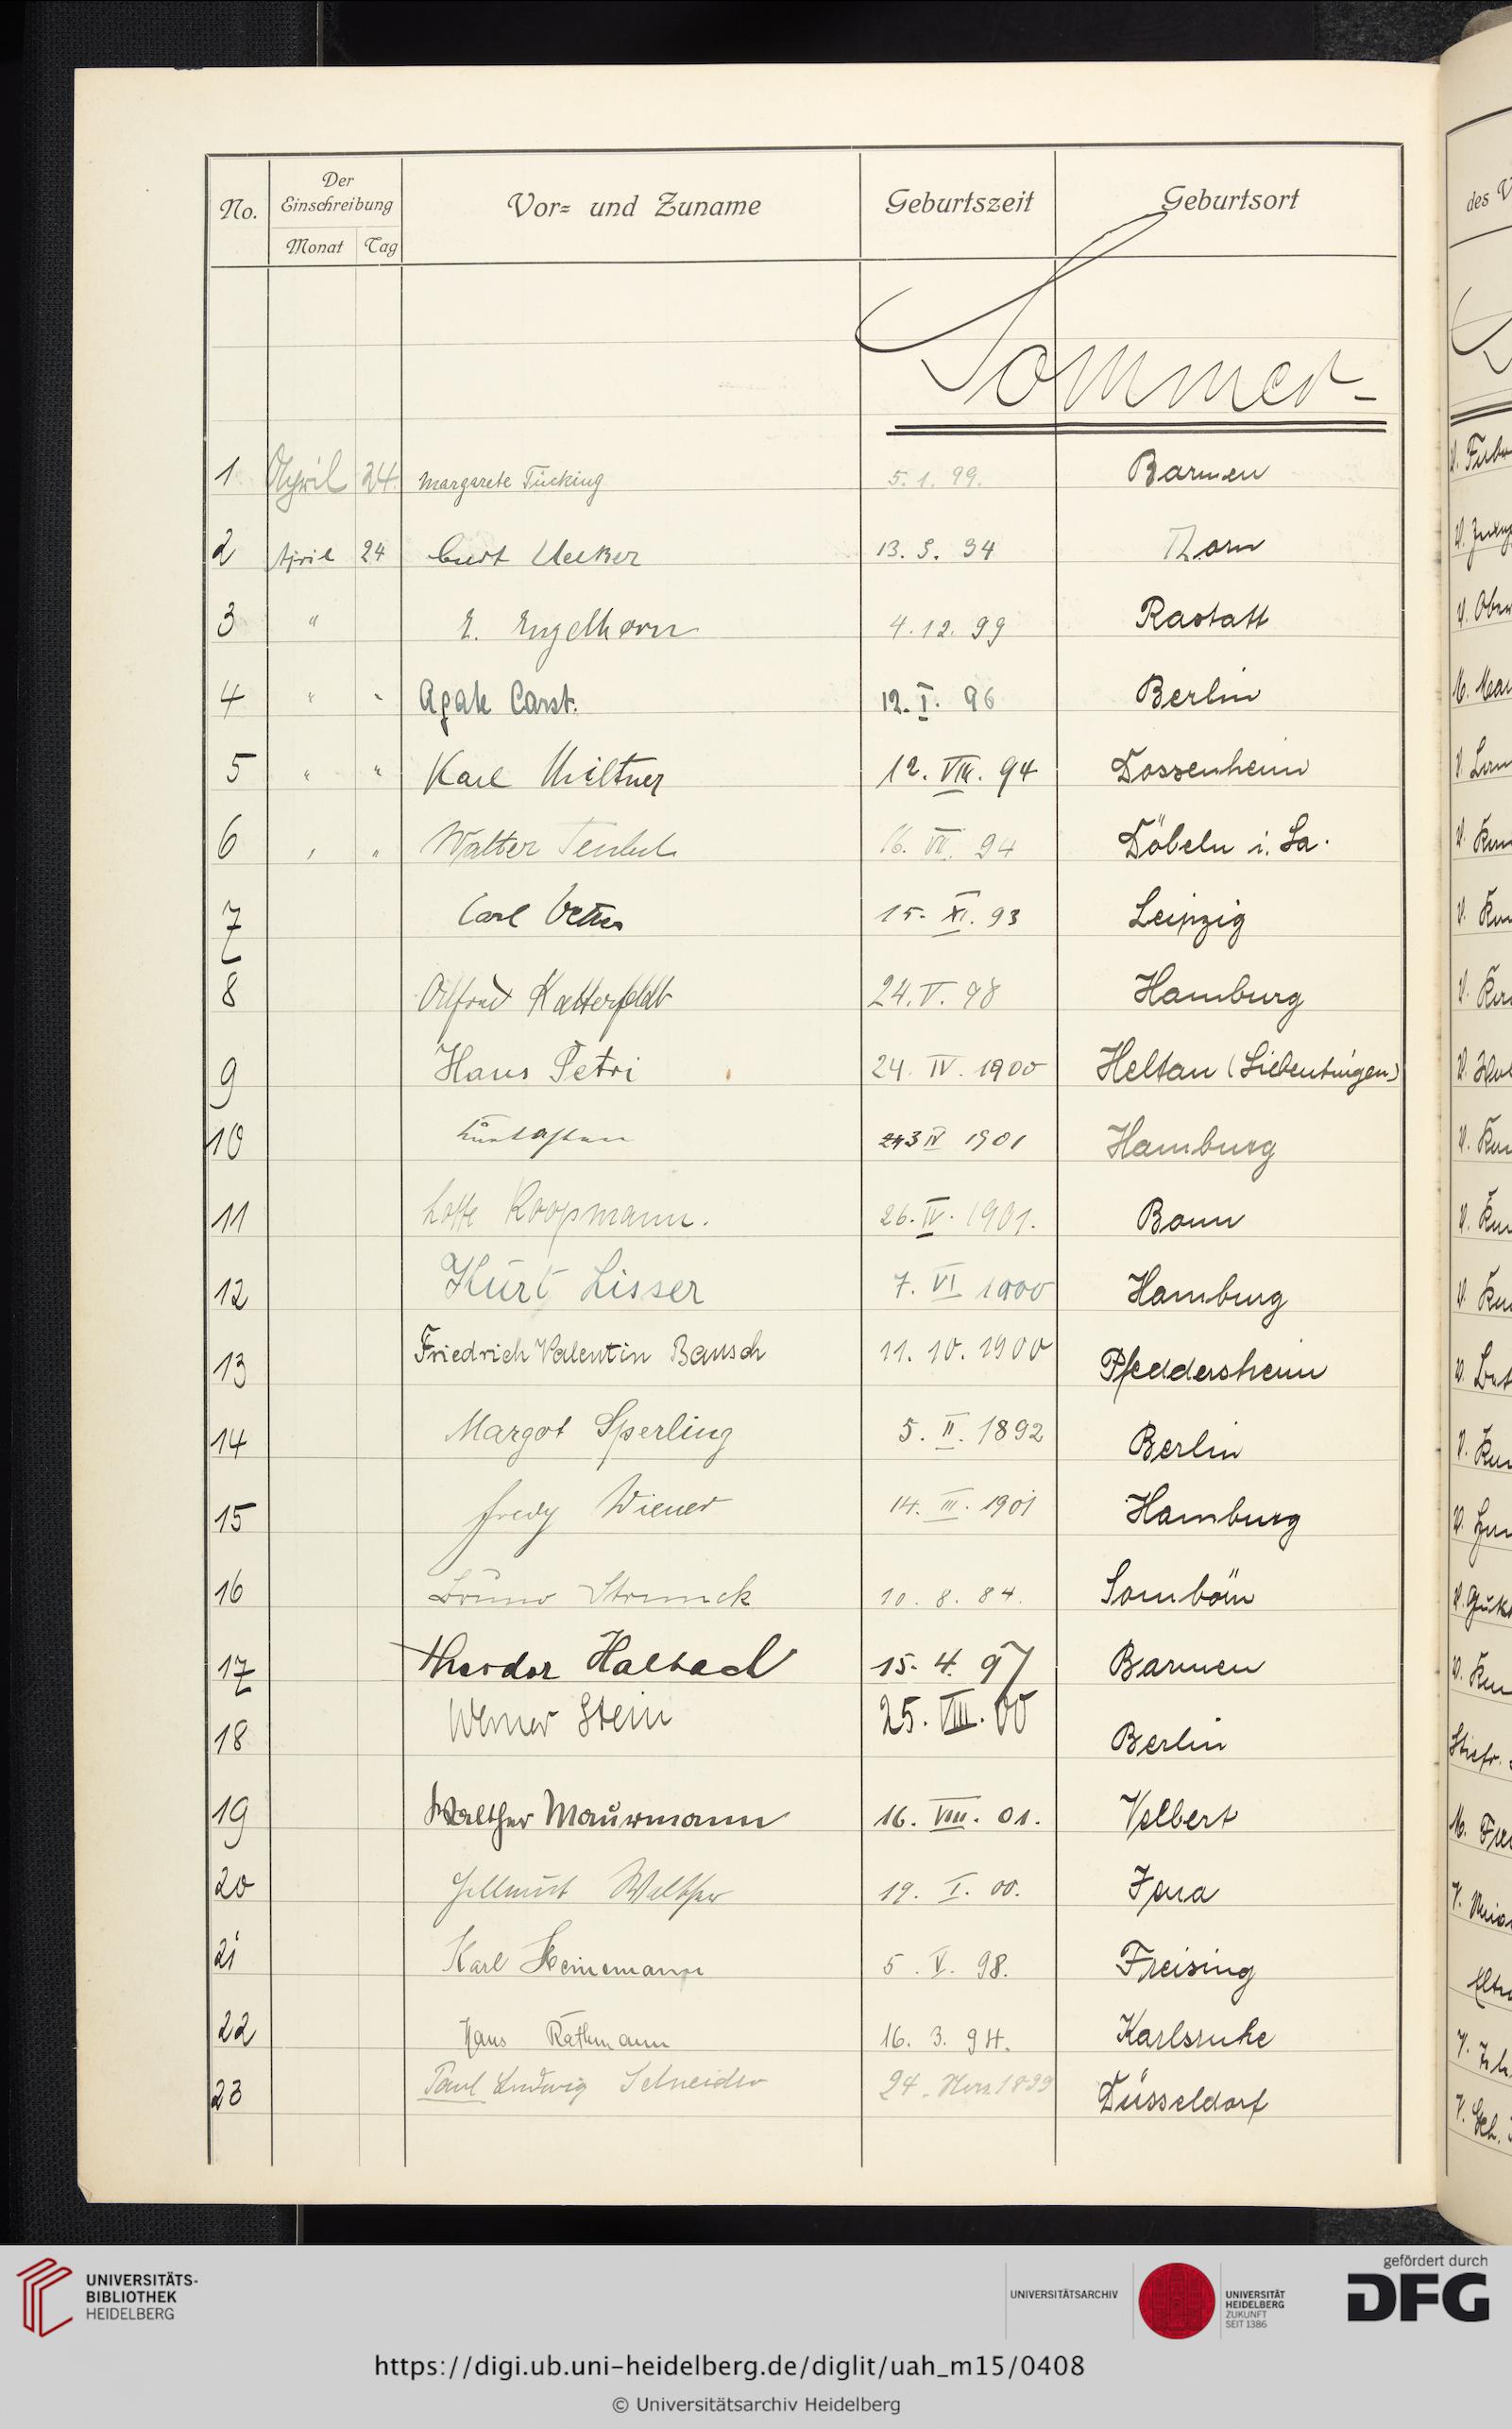 No.
Der Einschreibung
Monat Tag
Vor- und Zuname
Geburtszeit
Geburtsort
des V
Sommer-
1 April 24. Margarete Tücking 5. 1. 99. Barmen
2 April 24 Curt Uecker 13. 3. 94 Thorn
3 " E. Engelhorn 4. 12. 99 Rastatt
4 " " Agate Carst. 12. I. 96 Berlin
5 " " Karl Miltner 12. VIII. 94 Dossenheim
6 " " Walter 16. VI. 94 Döbeln i. Sa.
7 Carl Vetter 15. XI. 93 Leipzig
8 Alfred Katterfeldt 24. V. 98 Hamburg
9 Hans Petri 24. IV. 1900 Heltau (Siebenbürgen)
10 IV 1901 Hamburg
11 Lotte Koopmann. 26. IV. 1901. Bonn
12 Kurt Lisser 7. VI 1900 Hamburg
13 Friedrich Valentin Bausch 11. 10. 1900 Pfeddersheim
14 Margot Sperling 5. II. 1892 Berlin
15 Fredy Wiener 14. III. 1901 Hamburg
16 Bruno Strunck 10. 8. 84.
17 Theodor Halbach 15. 4. 97 Barmen
18 Werner Stein 25. VIII. 00 Berlin
19 Walther Maurmann 16. VIII. 01. Velbert
20 Hellmut Walther 19. I. 00. Jena
21 Karl Heinemann 5. V. 98. Freising
22 Hans Rathmann 16. 3. 94. Karlsruhe
23 Paul Ludwig Schneider 24. Nov. 1899 Düsseldorf
UNIVERSITÄTS-
BIBLIOTHEK
HEIDELBERG
UNIVERSITÄTSARCHIV
UNIVERSITÄT
HEIDELBERG
ZUKUNFT
SEIT 1386
gefördert durch
DFG
https://digi.ub.uni-heidelberg.de/diglit/uah_m15/0408
© Universitätsarchiv Heidelberg